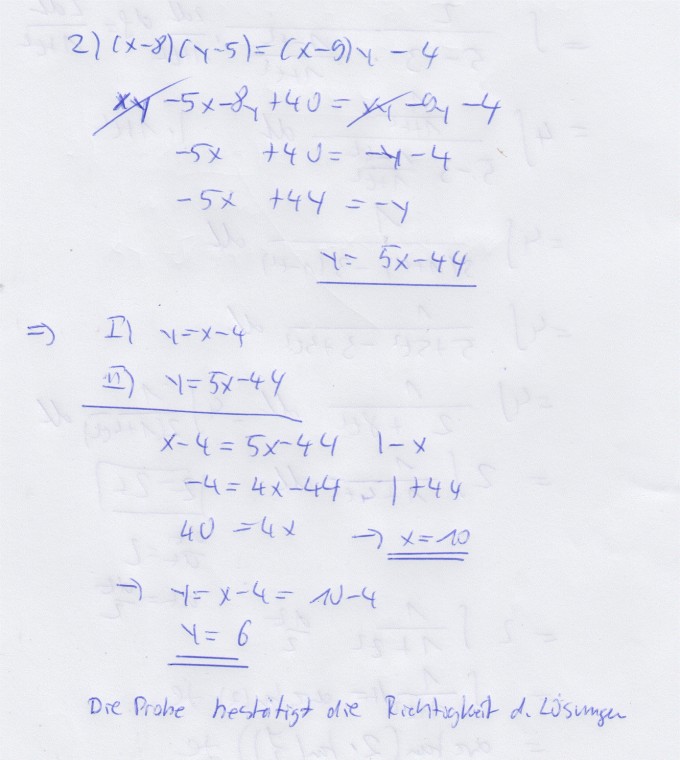 2) (x-8)(y-5) = (x-9)y - 4
xy - 5x - 8y + 40 = xy - 9y - 4
-5x + 40 = -y - 4
-5x + 44 = -y
y = 5x - 44
⇒ I) y = x - 4
II) y = 5x - 44
x - 4 = 5x - 44 | - x
-4 = 4x - 44 | + 44
40 = 4x → x = 10
→ y = x - 4 = 10 - 4
y = 6
Die Probe bestätigt die Richtigkeit d. Lösungen